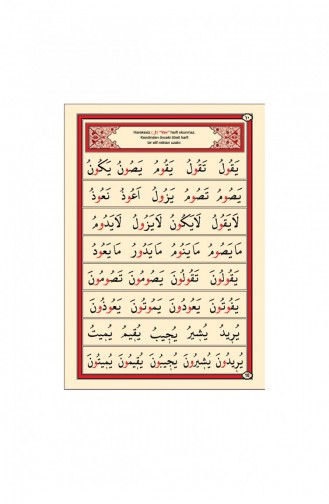 Harekesiz (و) "Vav" harfi okunmaz.
Kendinden önceki ötreli harfi
bir elif miktarı uzatır.
يَقُولُ تَقُولُ يَقُومُ يَصُونُ يَكُونُ
يَصُومُ تَصُومُ يَزُولُ اَعُوذُ نَعُوذُ
لَايَقُولُ لَايَكُونُ لَايَزُولُ لَايَدُومُ
مَايَصُومُ مَايَنُومُ مَايَدُورُ مَايَعُودُ
يَقُولُونَ تَقُولُونَ يَصُومُونَ تَصُومُونَ
يَفُوتُونَ يَعُودُونَ يَمُوتُونَ يَعُوذُونَ
يُرِيدُ يُشِيرُ يُجِيبُ يُقِيمُ يُمِيتُ
يُرِيدُونَ يُشِيرُونَ يُجِيبُونَ يُقِيمُونَ يُمِيتُونَ